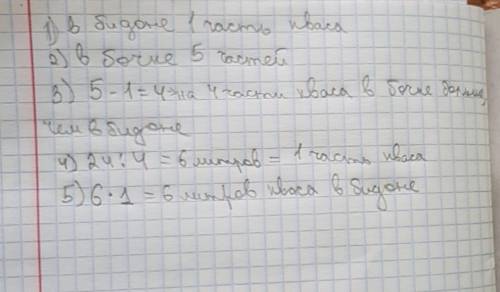 1) в бидоне 1 часть кваса
2) в бочке 5 частей
3) 5 - 1 = 4 - на 4 части кваса в бочке больше,
чем в бидоне
4) 24 : 4 = 6 литров = 1 часть кваса
5) 6 · 1 = 6 литров кваса в бидоне